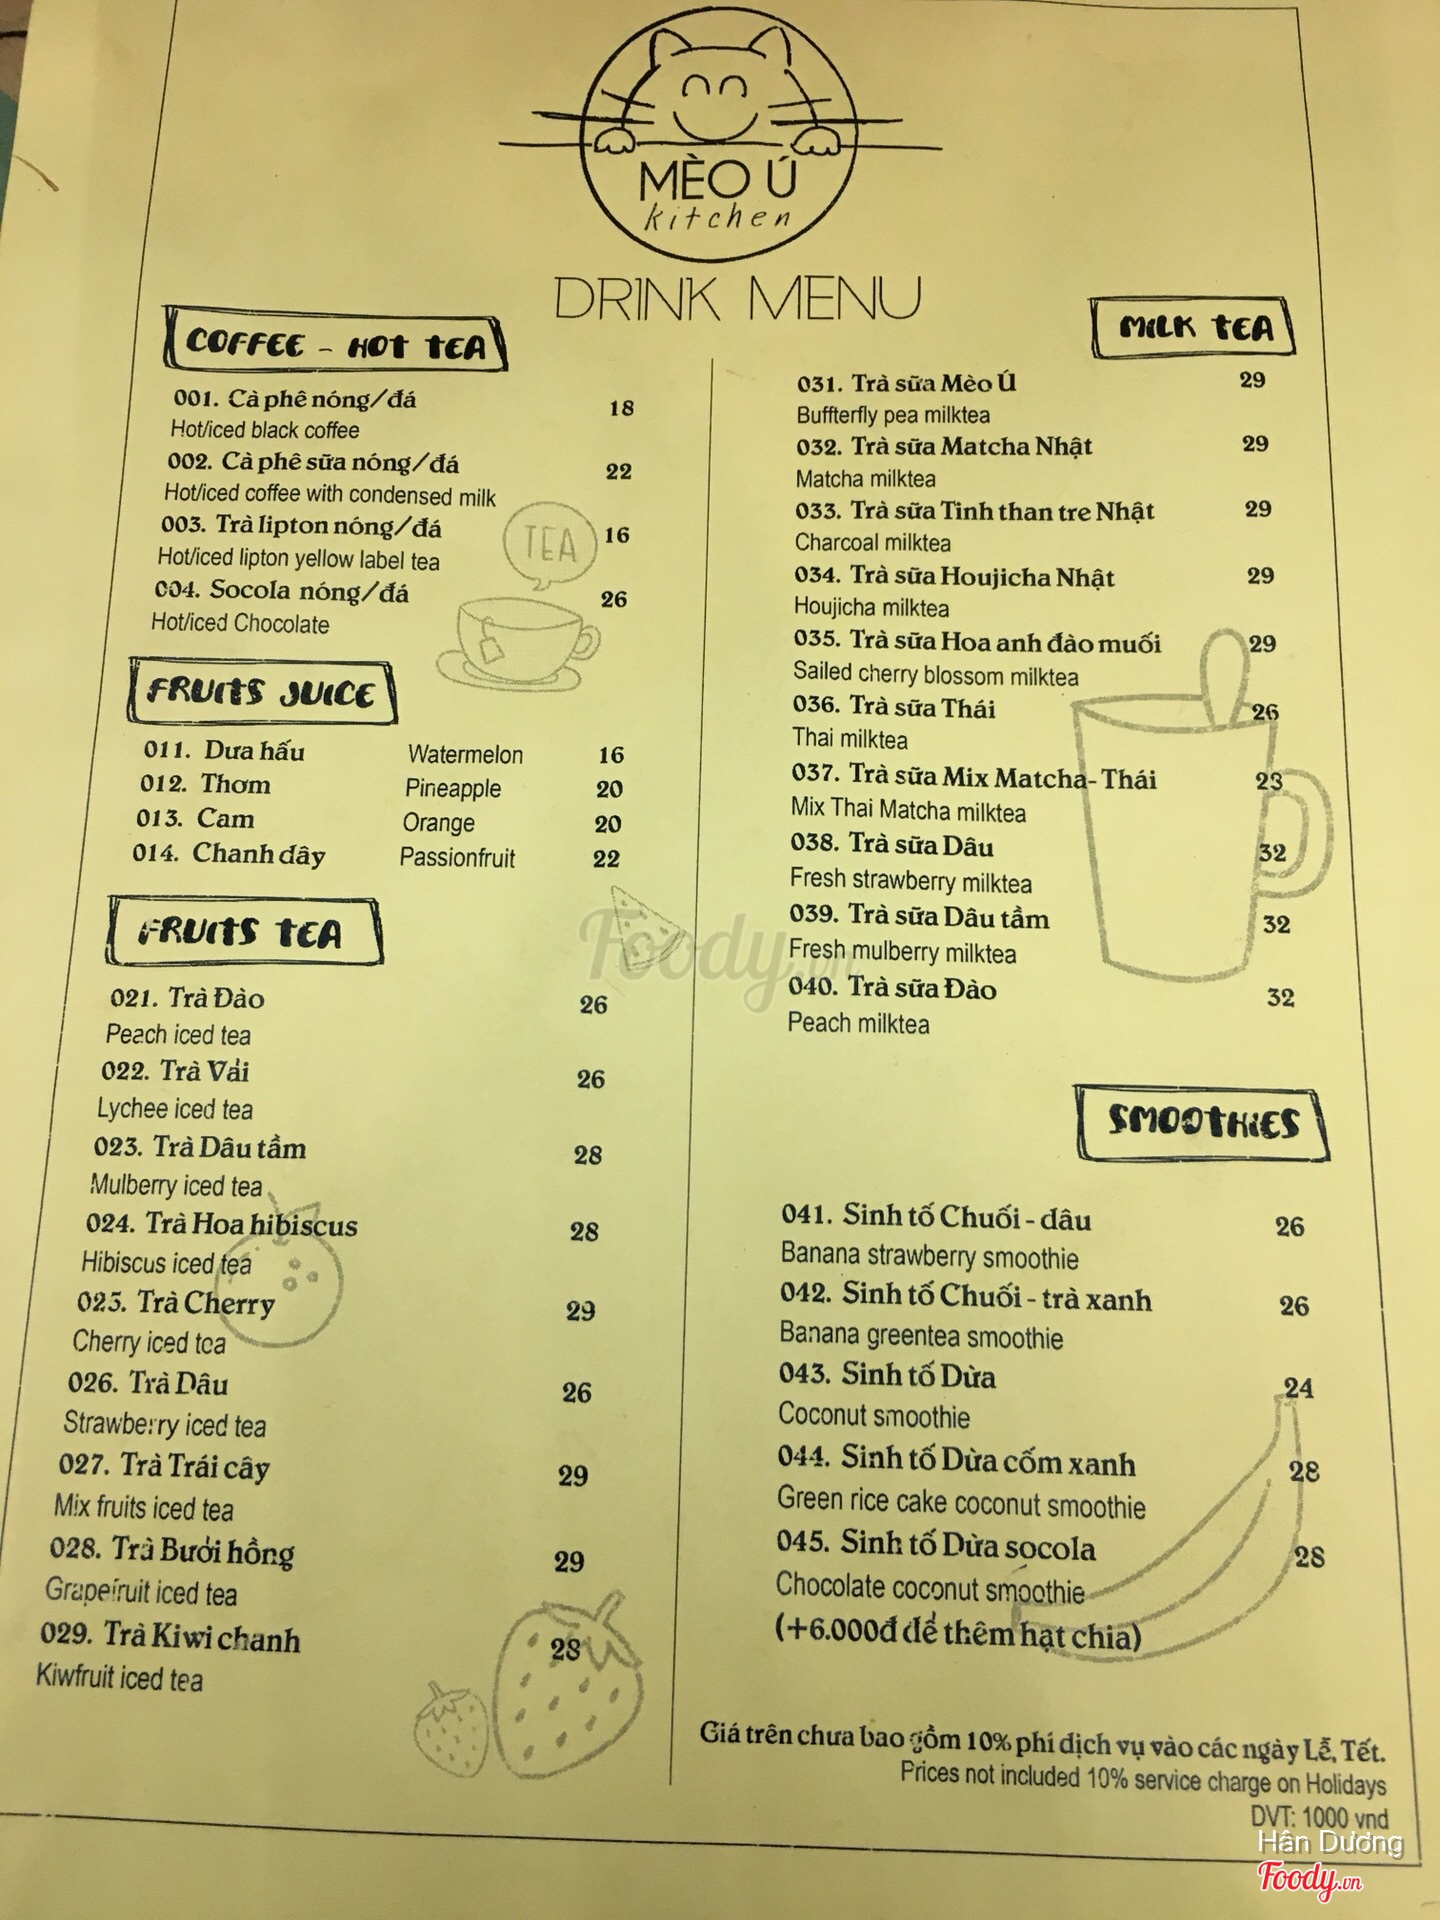 MÈO Ú
kitchen
DRINK MENU
COFFEE - HOT TEA
001. Cà phê nóng/đá 18
Hot/iced black coffee
002. Cà phê sữa nóng/đá 22
Hot/iced coffee with condensed milk
003. Trà lipton nóng/đá 16
Hot/iced lipton yellow label tea
004. Socola nóng/đá 26
Hot/iced Chocolate
TEA
FRUITS JUICE
011. Dưa hấu Watermelon 16
012. Thơm Pineapple 20
013. Cam Orange 20
014. Chanh dây Passionfruit 22
FRUITS TEA
021. Trà Đào 26
Peach iced tea
022. Trà Vải 26
Lychee iced tea
023. Trà Dâu tằm 28
Mulberry iced tea
024. Trà Hoa hibiscus 28
Hibiscus iced tea
025. Trà Cherry 29
Cherry iced tea
026. Trà Dâu 26
Strawberry iced tea
027. Trà Trái cây 29
Mix fruits iced tea
028. Trà Bưởi hồng 29
Grapefruit iced tea
029. Trà Kiwi chanh 28
Kiwfruit iced tea
MILK TEA
031. Trà sữa Mèo Ú 29
Buffterfly pea milktea
032. Trà sữa Matcha Nhật 29
Matcha milktea
033. Trà sữa Tinh than tre Nhật 29
Charcoal milktea
034. Trà sữa Houjicha Nhật 29
Houjicha milktea
035. Trà sữa Hoa anh đào muối 29
Sailed cherry blossom milktea
036. Trà sữa Thái 26
Thai milktea
037. Trà sữa Mix Matcha- Thái
Mix Thai Matcha milktea
038. Trà sữa Dâu 32
Fresh strawberry milktea
039. Trà sữa Dâu tằm 32
Fresh mulberry milktea
040. Trà sữa Đào 32
Peach milktea
SMOOTHIES
041. Sinh tố Chuối - dâu 26
Banana strawberry smoothie
042. Sinh tố Chuối - trà xanh 26
Banana greentea smoothie
043. Sinh tố Dừa 24
Coconut smoothie
044. Sinh tố Dừa cốm xanh 28
Green rice cake coconut smoothie
045. Sinh tố Dừa socola 28
Chocolate coconut smoothie
(+6.000đ để thêm hạt chia)
Giá trên chưa bao gồm 10% phí dịch vụ vào các ngày Lễ, Tết.
Prices not included 10% service charge on Holidays
DVT: 1000 vnd
Foody.vn
Hân Dương
Foody.vn